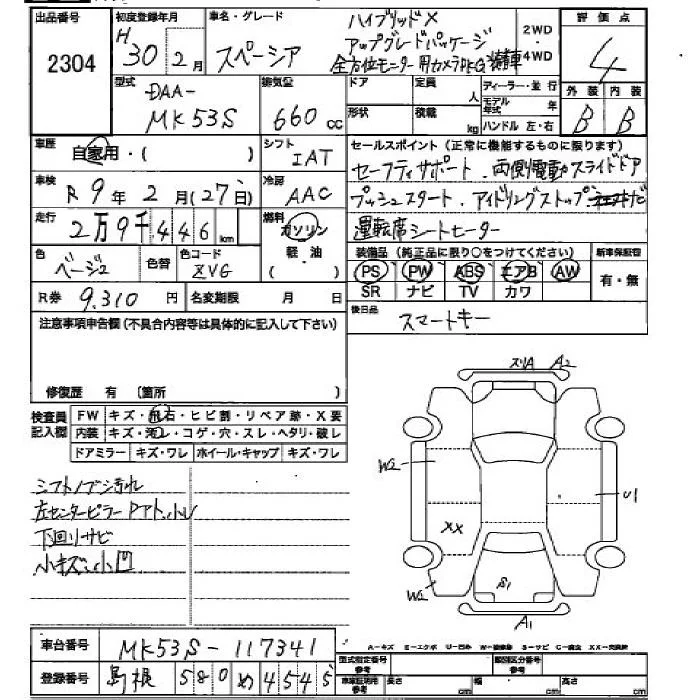 出品番号 初度登録年月 車名・グレード ハイブリッドX 2WD・4WD 評価点
2304 H30年2月 スペーシア アップグレードパッケージ 4
全方位モニター用カメラPKG装着車
型式 DAA-MK53S 排気公 660cc ドア 定員 人 ディーラー・並行 外装 内装
形状 積載 kg モデル年式 年 ハンドル 左・右 B B
車歴 自家用・( ) シフト IAT セールスポイント(正常に機能するものに限ります)
車検 R9年2月(27日) 冷房 AAC セーフティサポート、両側電動スライドドア
走行 2万9千446km 燃料 ガソリン 軽油 ( ) プッシュスタート、アイドリングストップ
運転席シートヒーター
色 ベージュ 色替 色コード ZVG 装備品(純正品に限り○をつけてください) 新車保証書
PS PW ABS エアB AW 有・無
SR ナビ TV カワ
R券 9,310円 名変期限 月 日
後日品 スマートキー
注意事項申告欄(不具合内容等は具体的に記入して下さい)
修復歴 有 〔箇所 〕
検査員記入欄 FW キズ・飛石・ヒビ割・リペア跡・X要
内装 キズ・汚レ・コゲ・穴・スレ・ヘタリ・破レ
ドアミラー キズ・ワレ ホイール・キャップ キズ・ワレ
シフトノブシ汚れ
左センターピラーPアト、小U
下回リサビ
小キズ、小凹
スリA A2
W2
U1
XX
W2 S1
A1
A-キズ E-エクボ U-凹み W-補修跡 S-サビ C-腐蝕 XX-交換済
車台番号 MK53S-117341
登録番号 島根 580 め 4545
型式指定番号 参考 類別区分番号 参考
車庫証明用 参考 長さ cm 幅 cm 高さ cm